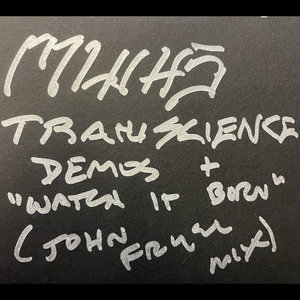 TRANSCIENCE
DEMOS +
"WATCH IT BURN"
(JOHN FRYER
MIX)